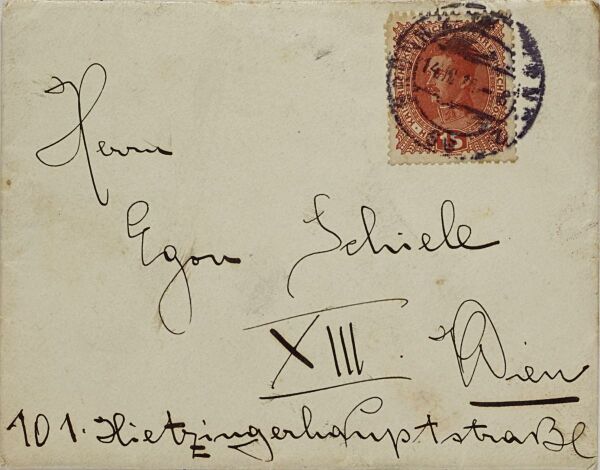 15
Herrn
Egon Schiele
XIII. Wien
101. Hietzingerhauptstraße